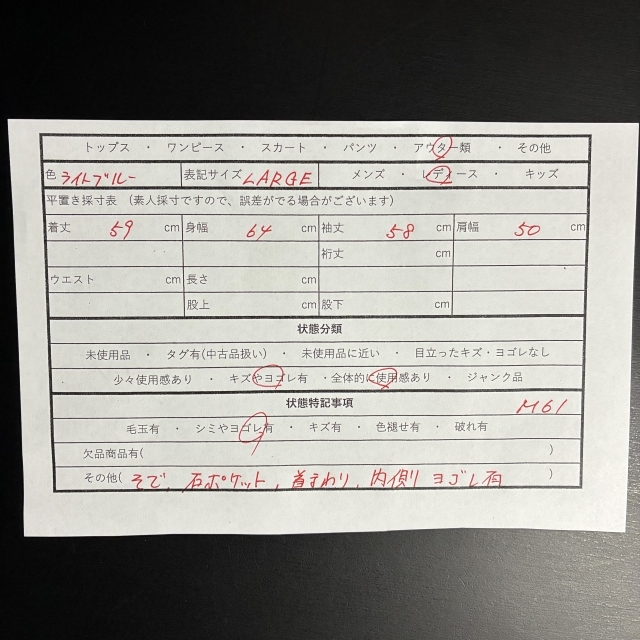 トップス ・ ワンピース ・ スカート ・ パンツ ・ アウター類 ・ その他
色 ライトブルー 表記サイズ LARGE メンズ ・ レディース ・ キッズ
平置き採寸表 (素人採寸ですので、誤差がでる場合がございます)
着丈 59 cm 身幅 64 cm 袖丈 58 cm 肩幅 50 cm
裄丈 cm
ウエスト cm 長さ cm
股上 cm 股下 cm
状態分類
未使用品 ・ タグ有(中古品扱い) ・ 未使用品に近い ・ 目立ったキズ・ヨゴレなし
少々使用感あり ・ キズやヨゴレ有 ・全体的に使用感あり ・ ジャンク品
状態特記事項
M61
毛玉有 ・ シミやヨゴレ有 ・ キズ有 ・ 色褪せ有 ・ 破れ有
欠品商品有( )
その他( そで、右ポケット、首まわり、内側 ヨゴレ有 )